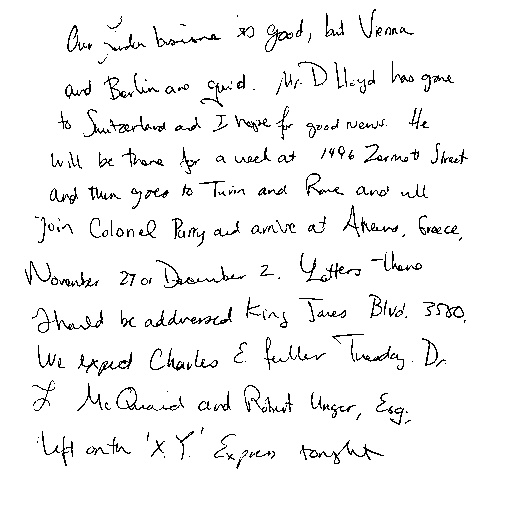 Our London business is good, but Vienna
and Berlin are quiet. Mr. D Lloyd has gone
to Switzerland and I hope for good news. He
will be there for a week at 1496 Zermott Street
and then goes to Turin and Rome and will
join Colonel Parry and arrive at Athens, Greece,
November 27 or December 2. Letters there
should be addressed King James Blvd. 3580.
We expect Charles E. Fuller Tuesday. Dr.
L McQuaid and Robert Unger, Esq.,
left on the 'X.Y.' Express tonight